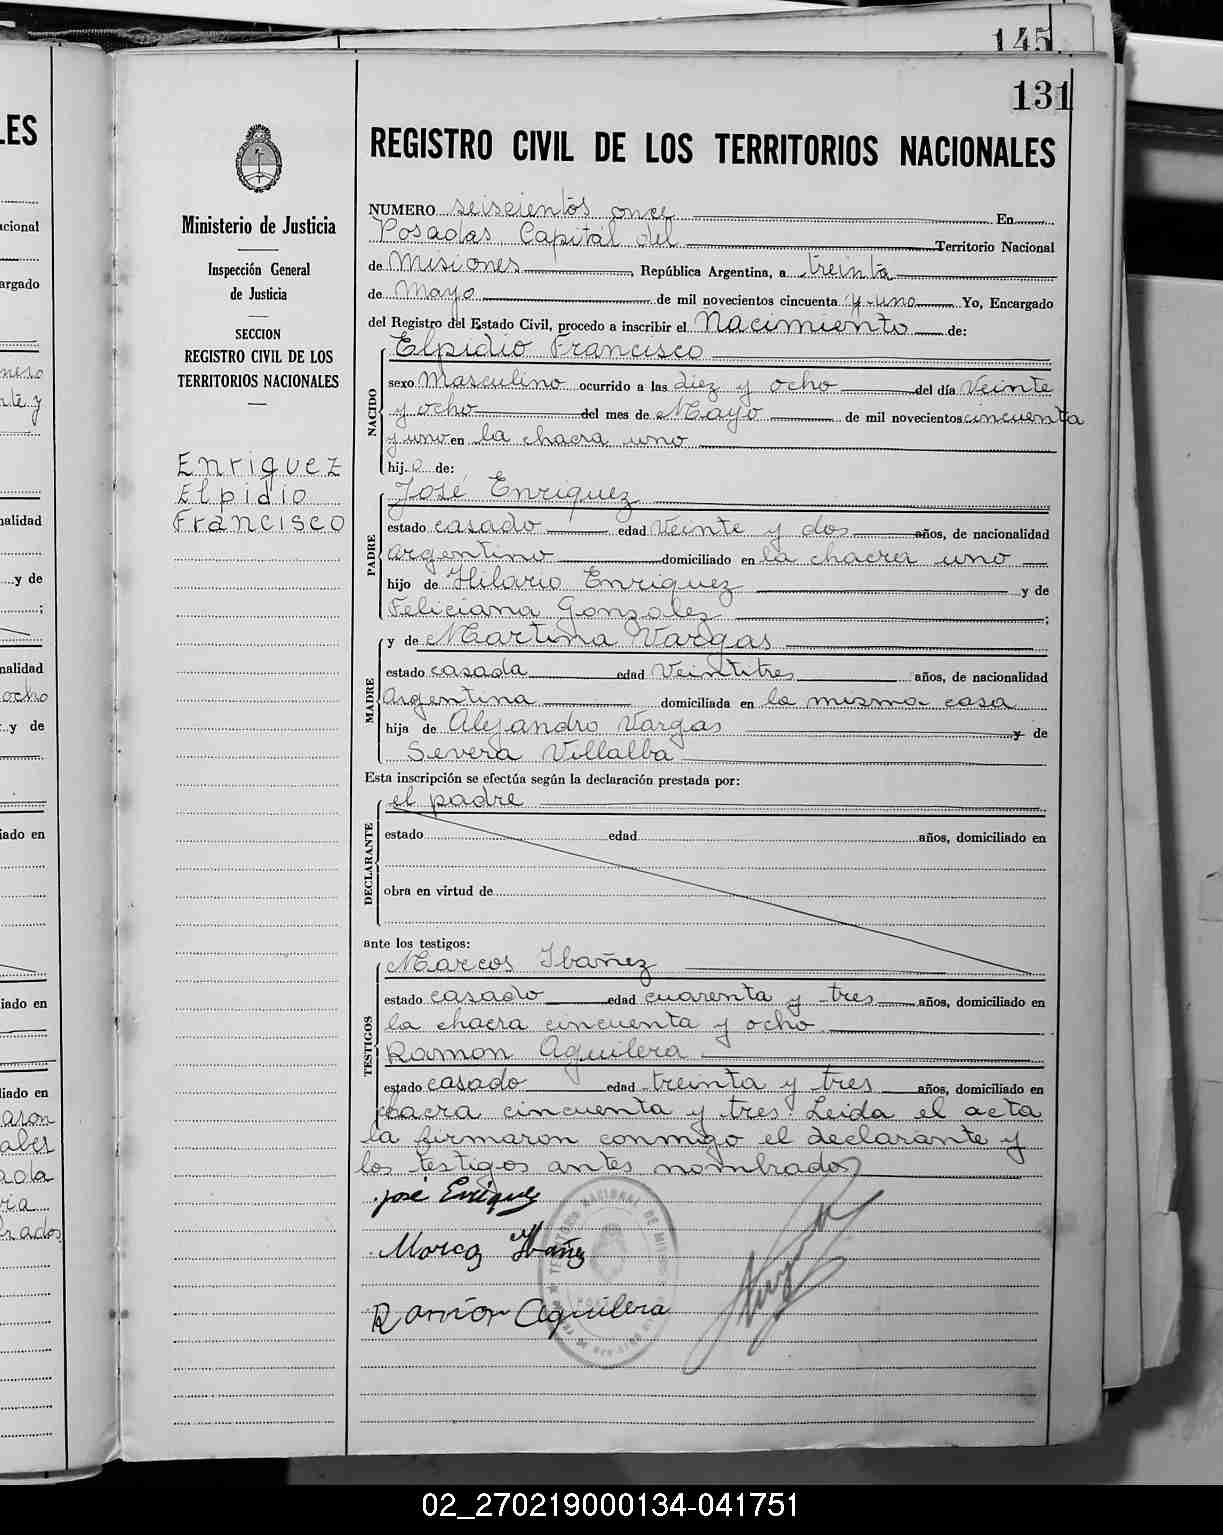 145
131
REGISTRO CIVIL DE LOS TERRITORIOS NACIONALES
Ministerio de Justicia
Inspección General
de Justicia
SECCION
REGISTRO CIVIL DE LOS
TERRITORIOS NACIONALES
Enriquez
Elpidio
Francisco
NUMERO seiscientos once En
Posadas Capital del Territorio Nacional
de Misiones, República Argentina, a treinta
de Mayo de mil novecientos cincuenta y uno Yo, Encargado
del Registro del Estado Civil, procedo a inscribir el Nacimiento de:
NACIDO
Elpidio Francisco
sexo Masculino ocurrido a las diez y ocho del día Veinte
y ocho del mes de Mayo de mil novecientos cincuenta
y uno en la chacra uno
hijo de:
PADRE
José Enriquez
estado casado edad Veinte y dos años, de nacionalidad
argentino domiciliado en la chacra uno
hijo de Hilario Enriquez y de
Feliciana Gonzalez;
MADRE
y de Martina Vargas
estado casada edad Veintitres años, de nacionalidad
Argentina domiciliada en la misma casa
hija de Alejandro Vargas y de
Severa Villalba
Esta inscripción se efectúa según la declaración prestada por:
DECLARANTE
el padre
estado edad años, domiciliado en
obra en virtud de
ante los testigos:
TESTIGOS
Marcos Ibañez
estado casado edad cuarenta y tres años, domiciliado en
la chacra cincuenta y ocho
Ramon Aguilera
estado casado edad treinta y tres años, domiciliado en
chacra cincuenta y tres. Leida el acta
la firmaron conmigo el declarante y
los testigos antes nombrados
José Enriquez
Marcos Ibañez
Ramón Aguilera
02_270219000134-041751